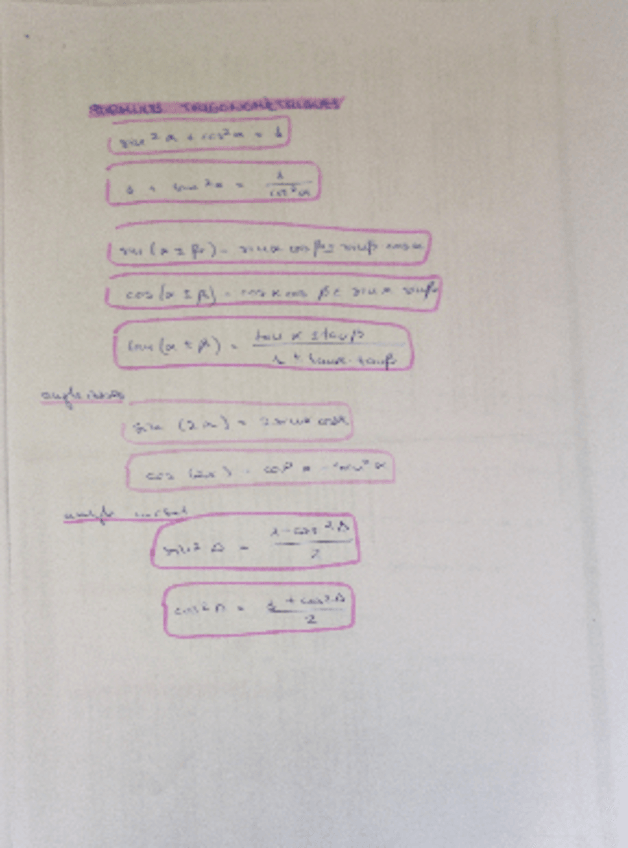 TRIGONOMÉTRIQUES
sin²α + cos²α = 1
1 + tan²α = 1/cos²α
sin(α ± β) = sinα cosβ ± sinβ cosα
cos(α ± β) = cosα cosβ sinα sinβ
tan(α ± β) = tanα ± tanβ / 1 tanα · tanβ
angle
sin (2α) = 2 sinα cosα
cos (2α) = cos²α - sin²α
angle
sin² = 1 - cos 2 / 2
cos² = 1 + cos 2 / 2